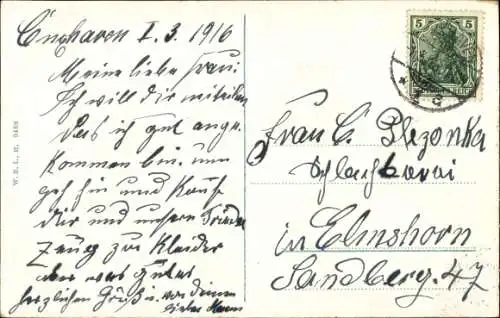 Cuxhaven I. 3. 1916
Meine liebe Frau!
Ich will dir mitteilen
Das ich gut ange
kommen bin. nun
geh hin und Kauf
dir und unsern
Zeug zu Kleider
aber was gutes
herzlichen Gruß u. von deinem
lieben Mann
Frau C. Plezonka
Schlachterei
in Elmshorn
Sandberg. 47
5 5
W. B. L., H. 9468